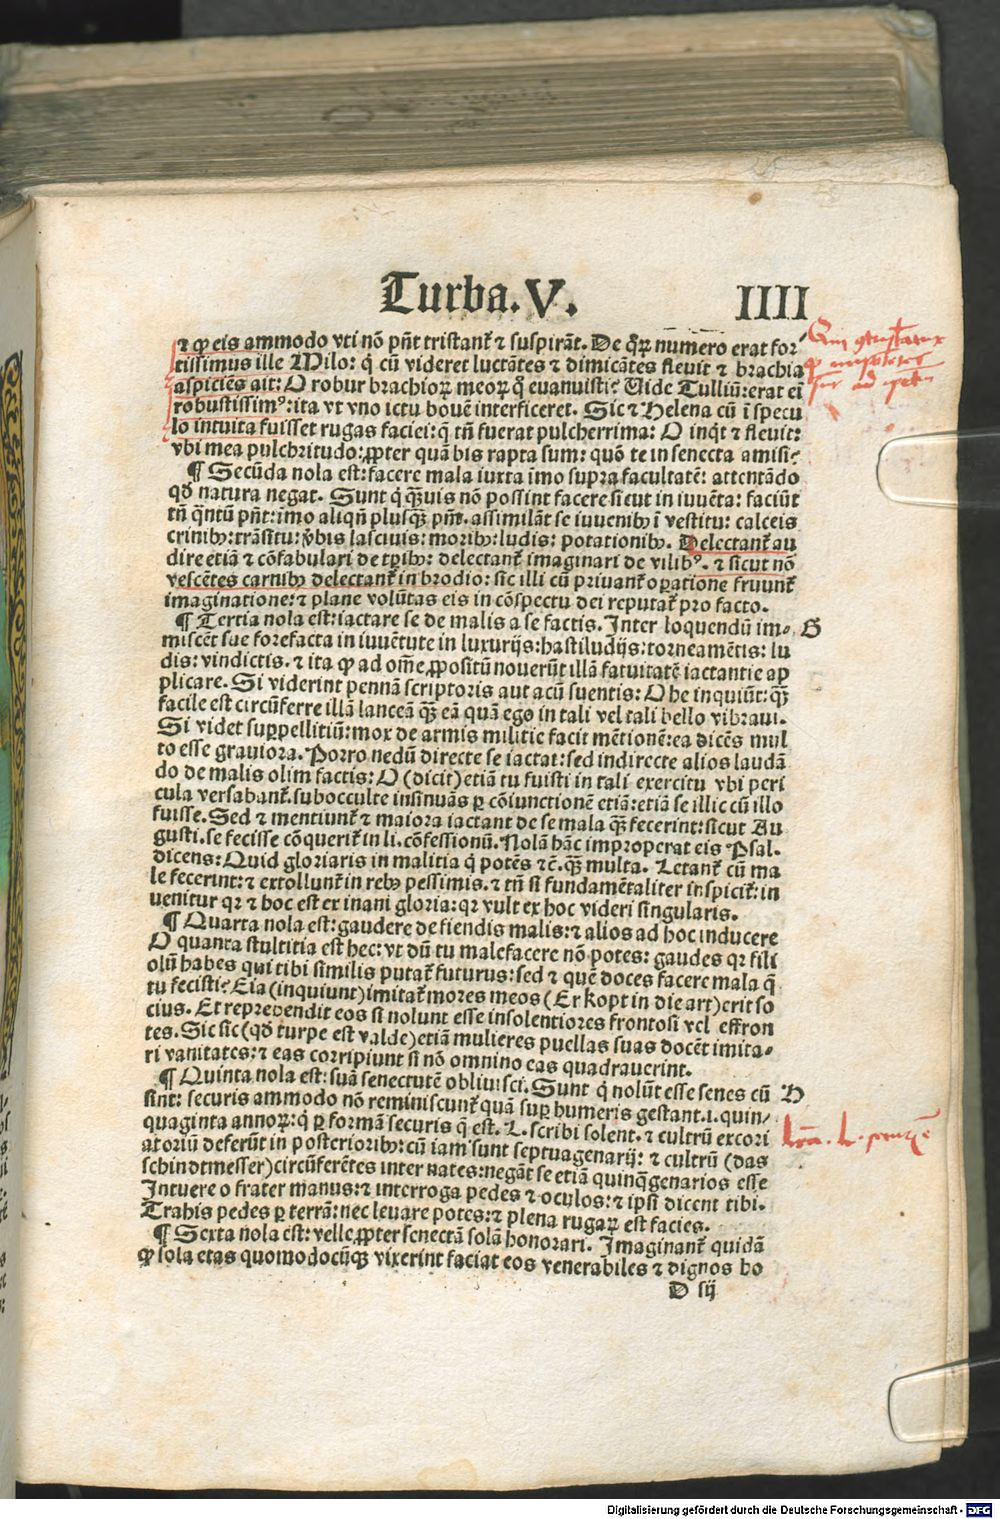 Turba.V.
IIII
⁊ ꝙ eis ammodo vti nõ pñt tristant᷑ ⁊ suspirãt. De q̃ꝝ numero erat for⸗
tissimus ille Milo: q̇ cũ videret luctãtes ⁊ dimicãtes fleuit ⁊ brachia
aspiciẽs ait: O robur brachioꝝ meoꝝ q̃ euanuisti? Uide Tulliũ: erat ei
robustissimꝰ: ita vt vno ictu bouẽ interficeret. Sic ⁊ Helena cũ ĩ specu
lo intuita fuisset rugas faciei: q̃ tñ fuerat pulcherrima: O inq̇t ⁊ fleuit:
vbi mea pulchritudo: ꝓpter quã bis rapta sum: quõ te in senecta amisi?
¶ Secũda nola est: facere mala iuxta imo supra facultatẽ: attentãdo
qđ natura negat. Sunt q̇ q̃uis nõ possint facere sicut in iuuẽta: faciũt
tñ q̃ntũ pñt: imo aliqñ plusq̃ꝫ pñt. assimilãt se iuuenibꝫ ĩ vestitu: calceis
crinibꝫ: trãsitu: v̾bis lasciuis: moribꝫ: ludis: potationibꝫ. Delectant᷑ au
dire etiã ⁊ cõfabulari de tꝑibꝫ: delectant᷑ imaginari de vilibꝰ. ⁊ sicut nõ
vescẽtes carnibꝫ delectant᷑ in brodio: sic illi cũ priuant᷑ oꝑatione fruunt᷑
imaginatione: ⁊ plane volũtas eis in cõspectu dei reputat᷑ pro facto.
¶ Tertia nola est: iactare se de malis a se factis. Inter loquendũ im⸗ G
miscẽt sue forefacta in iuuẽtute in luxurijs: hastiludijs: torneamẽtis: lu
dis: vindictis. ⁊ ita ꝙ ad om̃e ꝓpositũ nouerũt illã fatuitatẽ iactantie ap
plicare. Si viderint pennã scriptoris aut acũ suentis: O he inquiũt: q̃ꝫ
facile est circũferre illã lanceã q̃ꝫ eã quã ego in tali vel tali bello vibraui.
Si videt suꝑpellitiũ: mox de armis militie facit mẽtionẽ: ea dicẽs mul
to esse grauiora. Porro nedũ directe se iactat: sed indirecte alios laudã
do de malis olim factis: O (dicit) etiã tu fuisti in tali exercitu vbi peri
cula versabant᷑. subocculte insinuãs ꝑ cõiunctionẽ etiã: etiã se illic cũ illo
fuisse. Sed ⁊ mentiunt᷑ ⁊ maiora iactant de se mala q̃ꝫ fecerint: sicut Au
gusti. se fecisse cõquerit᷑ in li. cõfessionũ. Nolã hãc improperat eis Psal.
dicens: Quid gloriaris in malitia q̇ potẽs ⁊c̃. q̃ꝫ multa. Letant᷑ cũ ma
le fecerint: ⁊ extollunt᷑ in rebꝫ pessimis. ⁊ tñ si fundamẽtaliter inspicit᷑: in
uenitur qꝛ ⁊ hoc est ex inani gloria: qꝛ vult ex hoc videri singularis.
¶ Quarta nola est: gaudere de fiendis malis: ⁊ alios ad hoc inducere
O quanta stultitia est hec: vt dũ tu malefacere nõ potes: gaudes qꝛ fili
olũ habes qui tibi similis putat᷑ futurus: sed ⁊ quẽ doces facere mala q̃
tu fecisti? Eia (inquiunt) imitat᷑ mores meos (Er kopt in die art) erit so
cius. Et reprehendit eos si nolunt esse insolentiores frontosi vel effron
tes. Sic sic (qđ turpe est valde) etiã mulieres puellas suas docẽt imita⸗
ri vanitates: ⁊ eas corripiunt si nõ omnino eas quadrauerint.
¶ Quinta nola est: suã senectutẽ obliuisci. Sunt q̇ nolũt esse senes cũ H
sint: securis ammodo nõ reminiscunt᷑ quã suꝑ humeris gestant. i. quin⸗
quaginta annoꝝ: q̇ ꝑ formã securis q̃ est. L. scribi solent. ⁊ cultrũ excori
atoriũ deferũt in posterioribꝫ: cũ iam sunt septuagenarij: ⁊ cultrũ (das
schindtmesser) circũferẽtes inter nates: negãt se etiã quinq̃genarios esse
Intuere o frater manus: ⁊ interroga pedes ⁊ oculos: ⁊ ipsi dicent tibi.
Trahis pedes ꝑ terrã: nec leuare potes: ⁊ plena rugaꝝ est facies.
¶ Sexta nola est: velle ꝓpter senectã solã honorari. Imaginant᷑ quidã
ꝙ sola etas quomodocũqꝫ vixerint faciat eos venerabiles ⁊ dignos ho
D iij
Digitalisierung gefördert durch die Deutsche Forschungsgemeinschaft - DFG